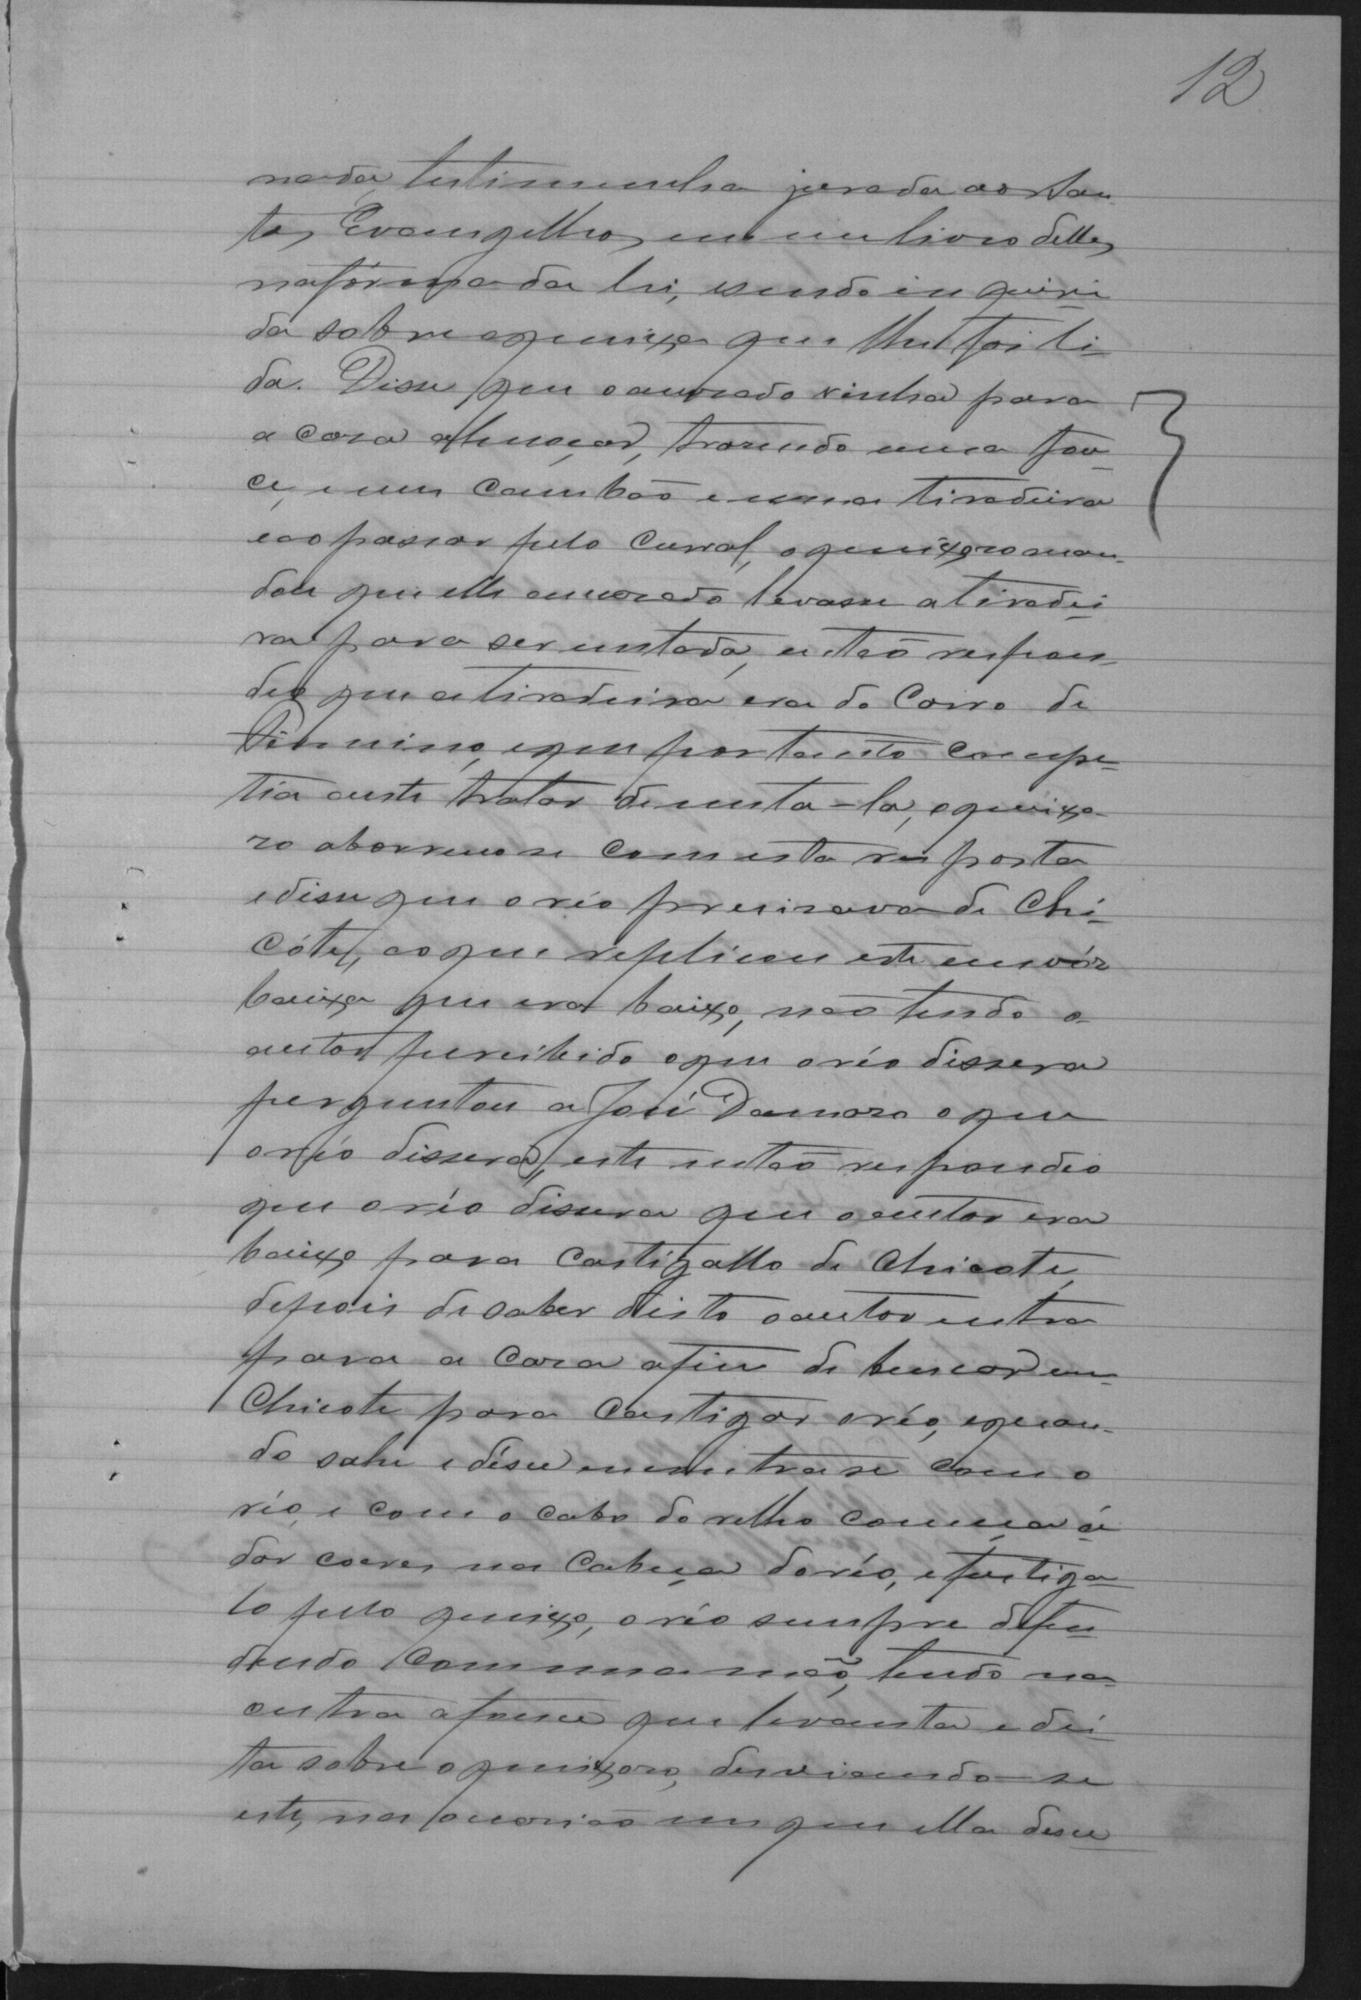 12
nada, testimunha jurada aos San-
tos Evangelhos em um livro delles
na fórma da lei, e sendo inquiri-
da sobre a queixa que lhe foi li-
da. Disse que o accusado vinha para
a casa almoçar, trazendo uma fou-
ce, e um cambão e uma tiradeira
e ao passar pelo curral, o queixoso man-
dou que elle accusado levasse a tiradei-
ra para ser untada, então respon-
deo que a tiradeira era do carro de
Firmino, e que portanto compe-
tia a este tratar de unta-la, o queixo-
zo aborreceose com esta resposta
e disse que o réo precisava de chi-
cóte, ao que replicou este em vóz
baixa que era baixo, não tendo o
autor percebido o que o réo dissera
perguntou a José Damazo o que
o réo dissera, este então respondeo
que o réo dissera que o autor era
baixo para castigallo de chicote,
depois de saber disto o autor entra
para a casa afim de buscar um
chicote para castigar o réo, e quan-
do sahe e désce encontra-se com o
réo, e com o cabo do relho começa á
dar coeres na cabeça do réo, e fustiga-
lo pelo queixo, o réo sempre defen-
dendo com uma mão, tendo na
outra a fouce que levanta e dei-
ta sobre o queixozo, desviando-se
este, na occasião em que ella desce